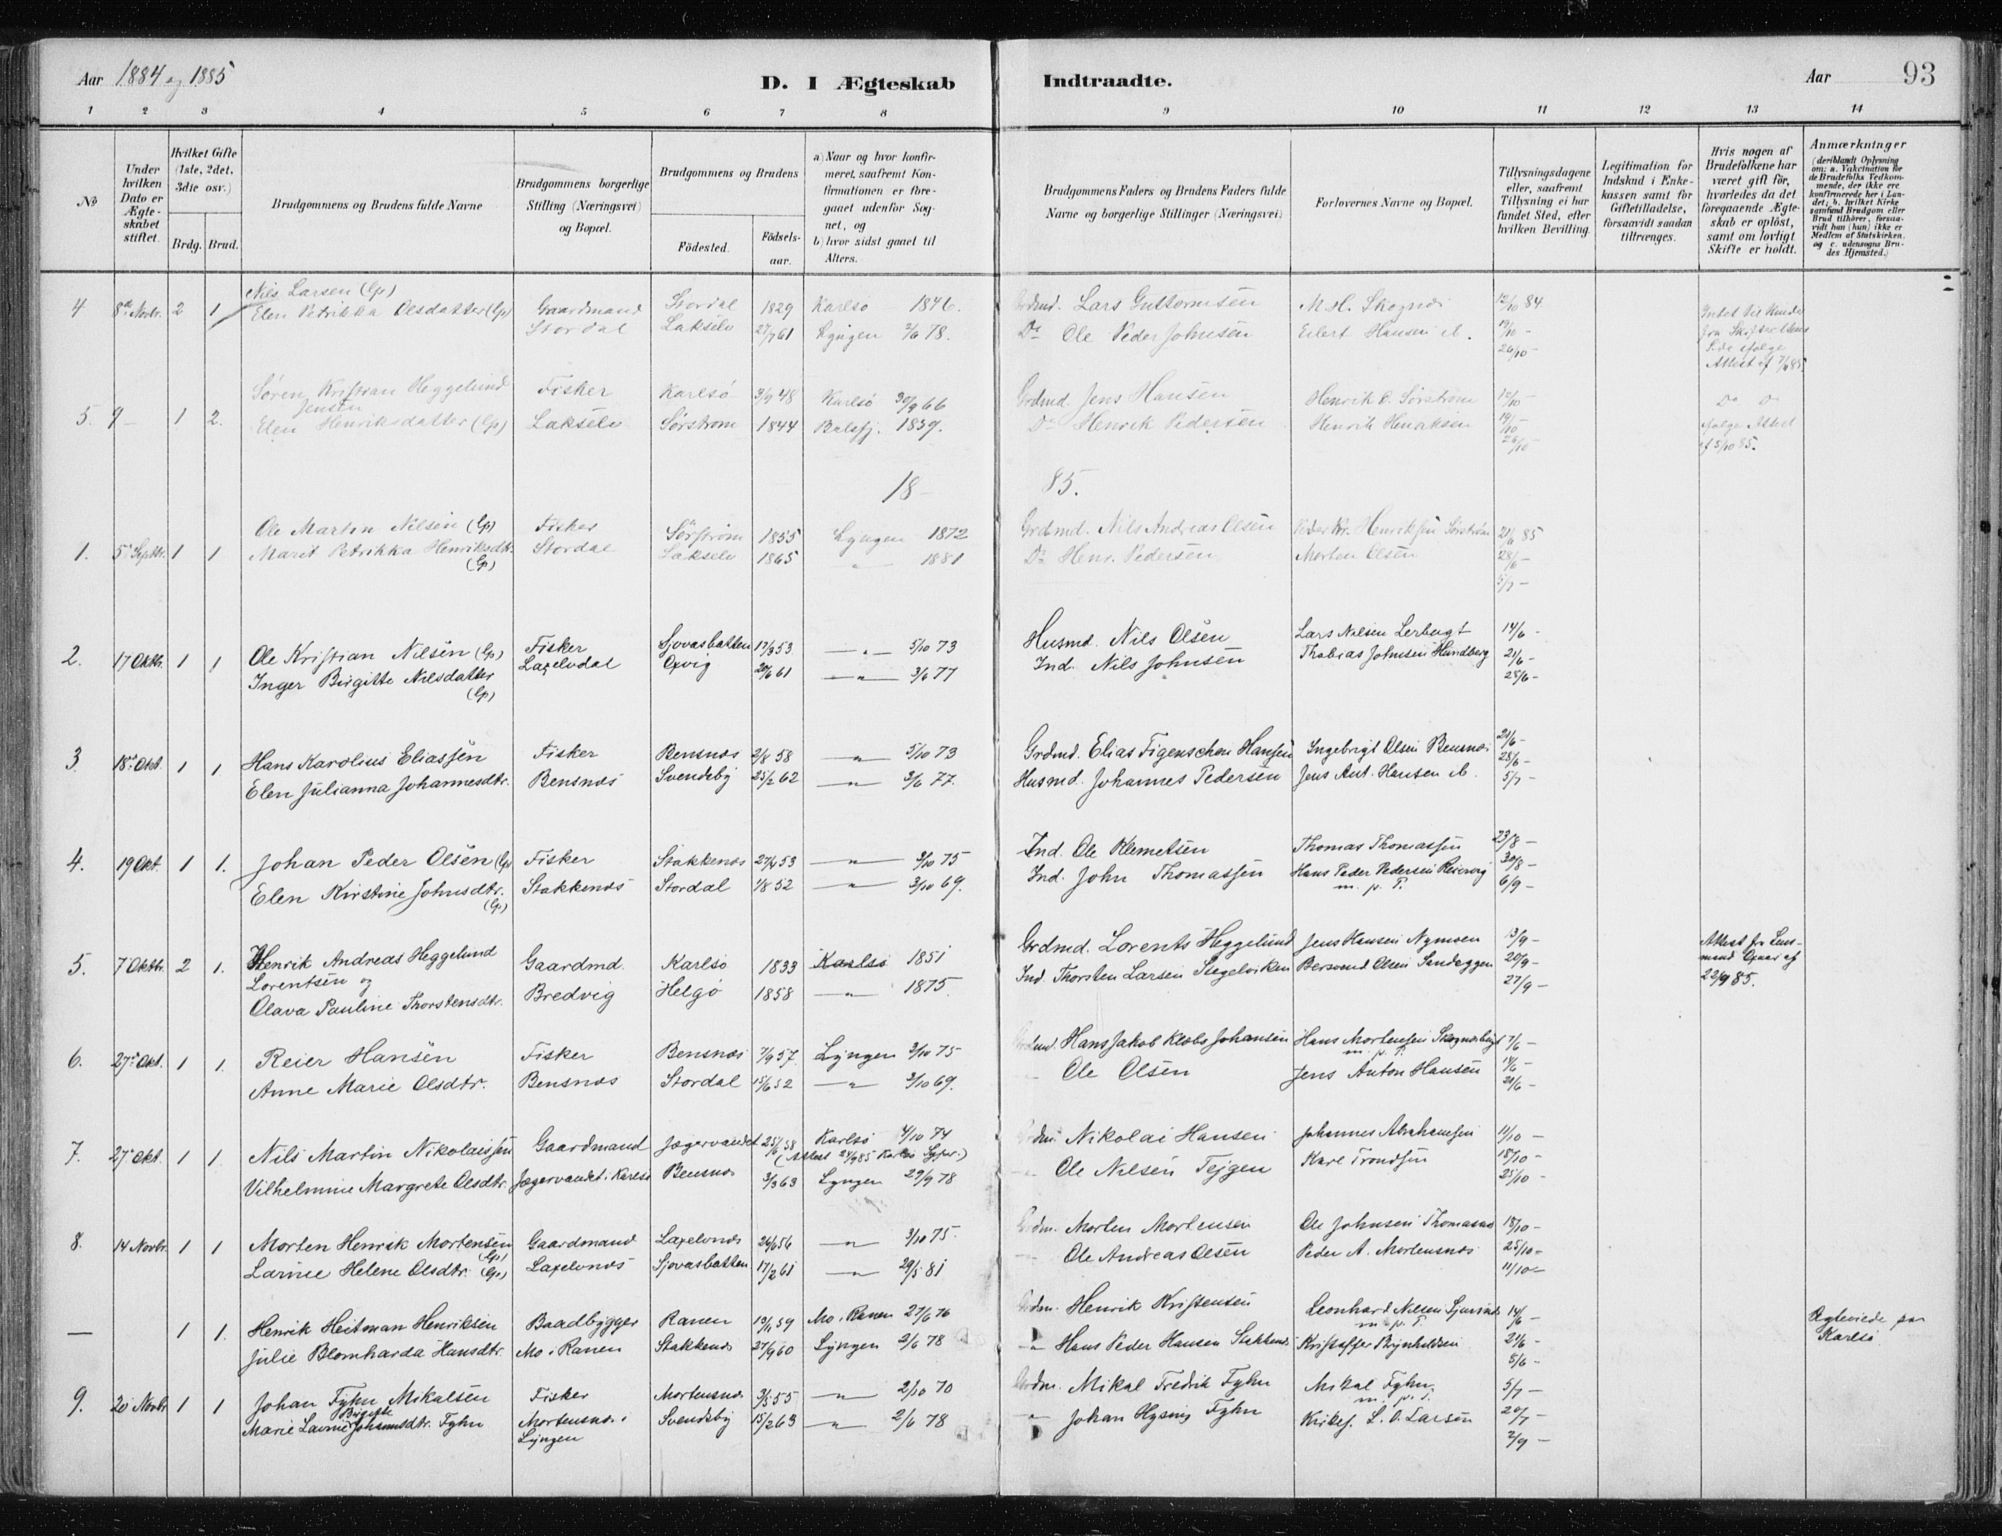 Aar 1884 og 1885
D. I Ægteskab Indtraadte.
Aar 93
1 2 3 4 5 6 7 8 9 10 11 12 13 14
No
Under hvilken Dato er Ægteskabet stiftet.
Hvilket Gifte (1ste, 2det, 3die osv.)
Brdg. Brud.
Brudgommens og Brudens fulde Navne
Brudgommens borgerlige Stilling (Næringsvei) og Bopæl.
Brudgommens og Brudens
Fødested. Fødsels-aar.
a) Naar og hvor konfirmeret, saafremt Konfirmationen er foregaaet udenfor Sognet, og
b) hvor sidst gaaet til Alters.
Brudgommens Faders og Brudens Faders fulde Navne og borgerlige Stillinger (Næringsvei)
Forlovernes Navne og Bopæl.
Tillysningsdagene eller, saafremt Tillysning ei har fundet Sted, efter hvilken Bevilling.
Legitimation for Indskud i Enkekassen samt for Giftetilladelse, forsaavidt saadan tiltrænges.
Hvis nogen af Brudefolkene har været gift før, hvorledes da det foregaaende Ægteskab er opløst, samt om lovligt Skifte er holdt.
Anmærkninger (deriblandt Oplysning om: a. Vakcination for de Brudefolks Vedkommende, der ikke ere konfirmerede her i Landet; b. hvilket Kirkesamfund Brudgom eller Brud tilhører, forsaavidt han (hun) ikke er Medlem af Statskirken. og c. udensogns Brudes Hjemsted.)
Nils Larsen (Gp) Stordal 1829 Karlsø 1846. Grdmd. Lars Guttormsen 12/10 84
4 8de Novbr. 2 1 Elen Petrikka Olsdatter (Gp) Gaardmand Stordal Lakselv 27/7 61 Lyngen 2/6 78. Do Ole Peder Johnsen Eilert Hansen ib. 19/10 – 26/10 –
Attest af 7/6 85
Søren Kristian Heggelund Jensen Fisker Karlsø 3/9 48 Karlsø 30/9 66 Grdmd. Jens Hansen Henrik O. Sørstrøm 12/10 –
5. 9 – 1 2. Elen Henriksdatter (Gp) Lakselv Sørstrøm 1844 Balsfj. 1859. Do Henrik Pedersen Henrik Henriksen 19/10 – 26/10
Do Do ifølge Attest af 5/10 85.
18 – 85.
Ole Martin Nilsen (Gp) Fisker Sørstrøm 1855 Lyngen 1872 Grdmd. Nils Andreas Olsen Peder Kr. Henriksen Sørstrøm 21/6 85
1. 5te Septbr. 1 1 Marit Petrikka Henriksdtr. (Gp) Stordal Lakselv 1865 " 1881 Do Henr. Pedersen Morten Olsen 28/6 – 5/7 –
2. 17 Oktbr. 1 1 Ole Kristian Nilsen (Gp) Fisker Sjovasbatten 17/9 53 – " – 5/10 73 Husmd. Nils Olsen Lars Nilsen Lerbugt 14/6 –
Inger Birgitte Nilsdatter (Gp) Laxelvdal Oxvig 20/6 61 – " – 3/6 77 Ind. Nils Johnsen Thobias Johnsen Hundberg 21/6 – 28/6 –
3 18de Okt. 1 1 Hans Karolius Eliassen Fisker Bensnæs 2/8 58 " 5/10 73 Grdmd. Elias Figenschou Hansen Ingebrigt Olsen Bensnæs 21/6 – 28/6 –
Elen Julianna Johannesdtr. Bensnæs Svendsby 25/2 62 – " – 3/6 77. Husmd. Johannes Pedersen Jens Ant. Hansen ib. 5/7 –
4. 19 Okt. 1 1. Johan Peder Olsen (Gp) Fisker Stakkenæs 27/4 53 – " – 3/10 75 Ind. Ole Klemetsen Thomas Thomassen 23/8 –
Elen Kirstine Johnsdtr. (Gp) Stakkenæs Stordal 1/8 52 – " – 3/10 69. Ind. John Thomassen Hans Peder Pedersen Reiervig m. p. P. 30/8 – 6/9 –
5. 7 Oktbr. 2 1. Henrik Andreas Heggelund Lorentsen og Gaardmd. Karlsø 1833 Karlsø 1851 Grdmd. Lorents Heggelund Jens Hansen Nymoen 13/9 –
Olava Pauline Thorstensdtr. Bredvig Helgø 1858 – " – 1875. Ind. Thorsten Larsen Stegelviken Berwend Olsen Sandeggen 20/9 – 27/9 –
Attest fra Lensmand Qvaar af 22/9 85.
6. 27de Okt. 1 1. Reier Hansen Fisker Bensnæs 7/9 57. Lyngen 3/10 75 Grdmd. Hans Jakob Kløbs Johansen Hans Mortensen m. p. P. 7/6 –
Anne Marie Olsdtr. Bensnæs Stordal 15/6 52 – " – 3/10 69. – Ole Olsen Jens Anton Hansen 14/6 – 21/6 –
7. 27de Okt. 1 1. Nils Martin Nikolaissen Gaardmand Jægervandet 25/6 58 Karlsø 4/10 74 Grdm. Nikolai Hansen Johannes Abrahamsen 11/10 –
(Attest 24/9 85 Karlsø Sgpr.)
Vilhelmine Margrete Olsdtr. Jægervandet i Karlsø Bensnæs 3/3 63 Lyngen 29/9 78 – Ole Nilsen Tejgen Karl Trondsen 18/10 – 25/10 –
8. 14 Novbr. 1 1 Morten Henrik Mortensen (Gp) Gaardmand Laxelvnæs 24/6 56 " 3/10 75. Grdm. Morten Mortensen Ole Johnsen 18/10 –
Larine Helene Olsdtr. (Gp) Laxelvnæs Sjovasbatten 17/2 61 " 29/5 81 – Ole Andreas Olsen Peder A. Mortensnæs 25/10 – 11/10 –
— 1 1. Henrik Heitman Henriksen Baadbygger Ranen 19/11 59 Mo i Ranen 27/6 76 Grdm. Henrik Kristensen Leonhard Nilsen m. p. P. 14/6 – Ægteviede paa Karlsø
Julie Blomharda Hansdtr. Mo i Ranen Stakkenæs 27/9 60 Lyngen 2/6 78 – " Hans Peder Hansen Stakkenæs Kristoffer Brynhildsen 21/6 – 5/6 –
9. 20 Novbr. 1 1 Johan Fyhn Mikalsen Fisker Mortensnæs 3/5 55 – " – 2/10 70 Grdm. Mikal Fredrik Fyhn Mikal Fyhn m. p. P. 5/7 –
Marie Lavine Birgitte Johansdtr. Fyhn Mortensnæs i Lyngen Svendsby 15/2 63 " 2/6 78 " Johan Hysing Fyhn Kirkes. L. O. Larsen 20/7 – 2/9 –